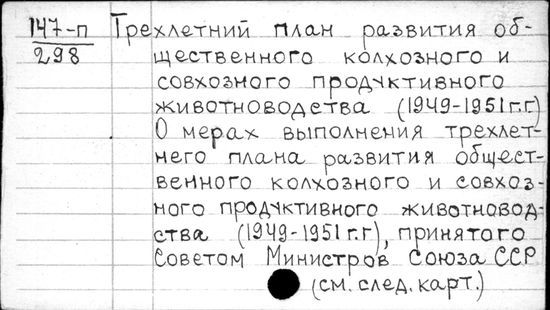 147-п Трехлетний план развития об-
298 щественного колхозного и
совхозного продуктивного
животноводства (1949-1951 г.г)
О мерах выполнения трехлет-
него плана развития общест-
венного колхозного и совхоз-
ного продуктивного животновод-
ства (1949-1951 г.г), принятого
Советом Министров Союза ССР
(см. след. карт.)